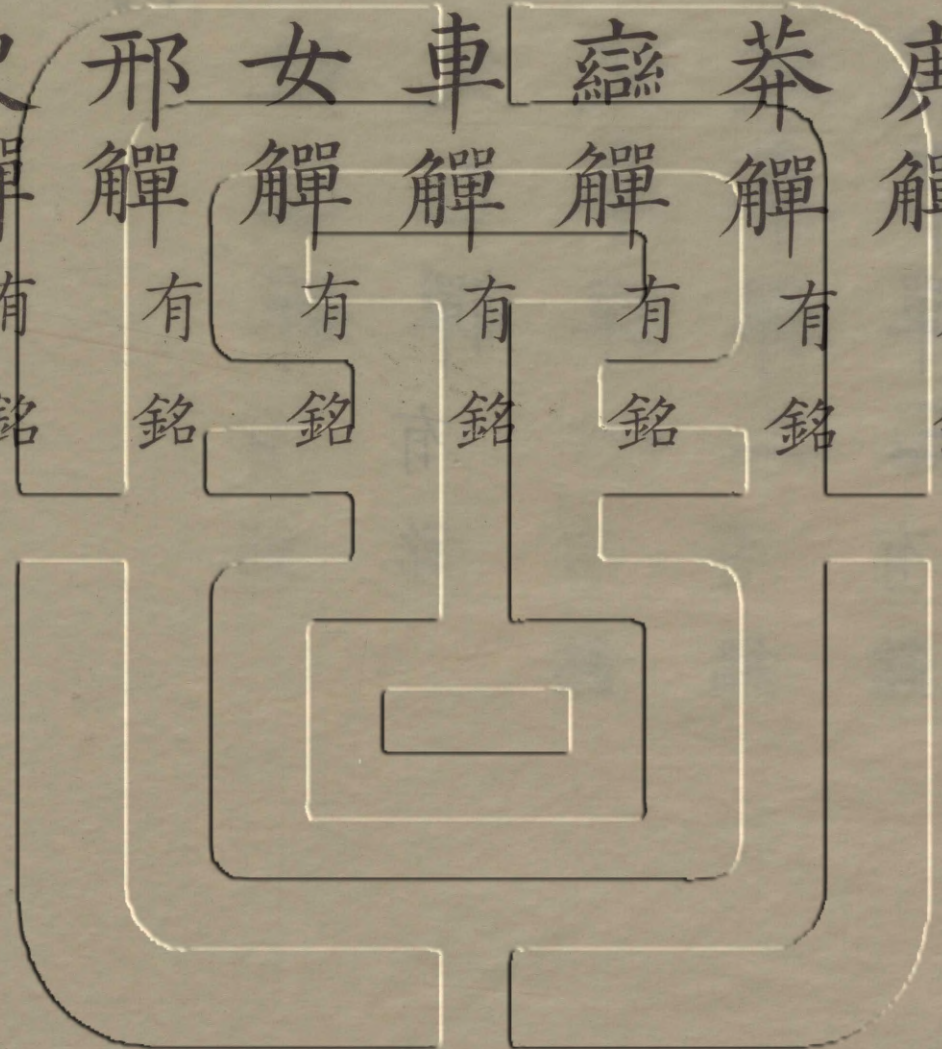 莽觶有銘
䜌觶有銘
車觶有銘
女觶有銘
邢觶有銘
觶有銘